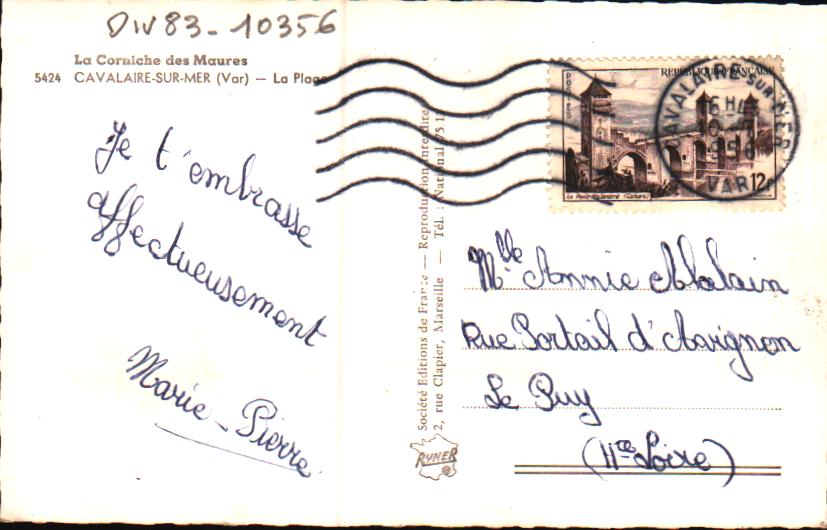 DIV83-10356
La Corniche des Maures
5424 CAVALAIRE-SUR-MER (Var) — La Plage
Je t'embrasse
affectueusement
Marie-Pierre
Société Editions de France — Reproduction interdite
2, rue Clapier, Marseille — Tél. : National 75 1
RYNER
POSTES
REPUBLIQUE FRANÇAISE
Le Pont Valentré (Cahors)
12F
CAVALAIRE SUR MER
VAR
Mlle Annie
Rue Portail d'Avignon
Le Puy
(Hte Loire)